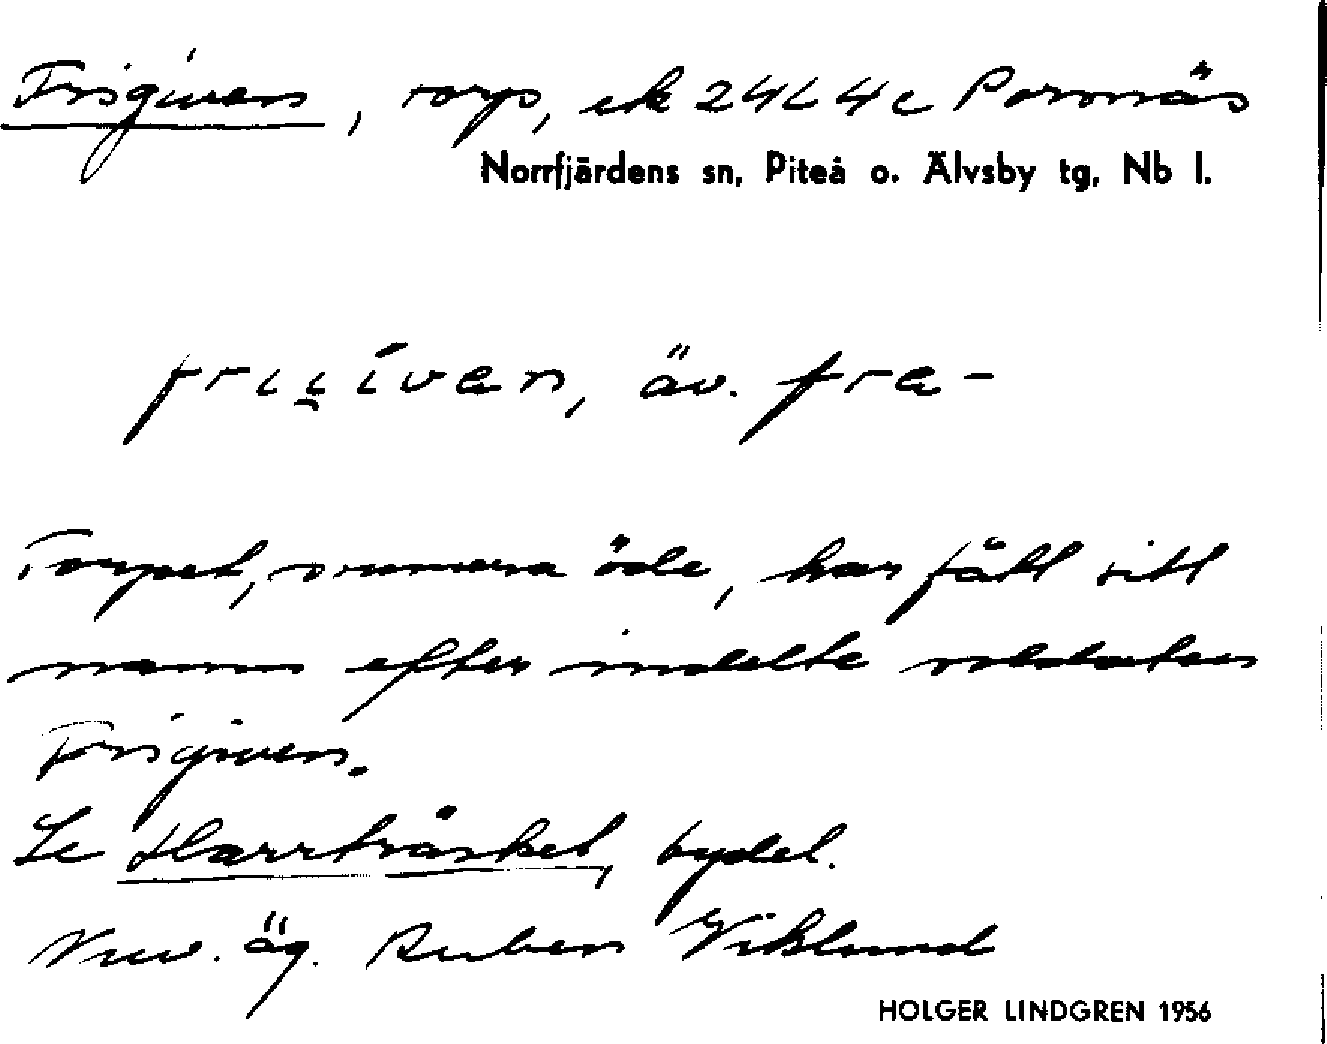 Frigiven, torp, ek 24L4c Porsnäs
Norrfjärdens sn, Piteå o. Älvsby tg, Nb l.
frii̯íven, äv. fre-
Torpet, numera öde, har fått sitt
namn efter indelte soldaten
Frigiven.
Se Harrträsket, bydel.
Nuv. äg. Ruben Viklund
HOLGER LINDGREN 1956